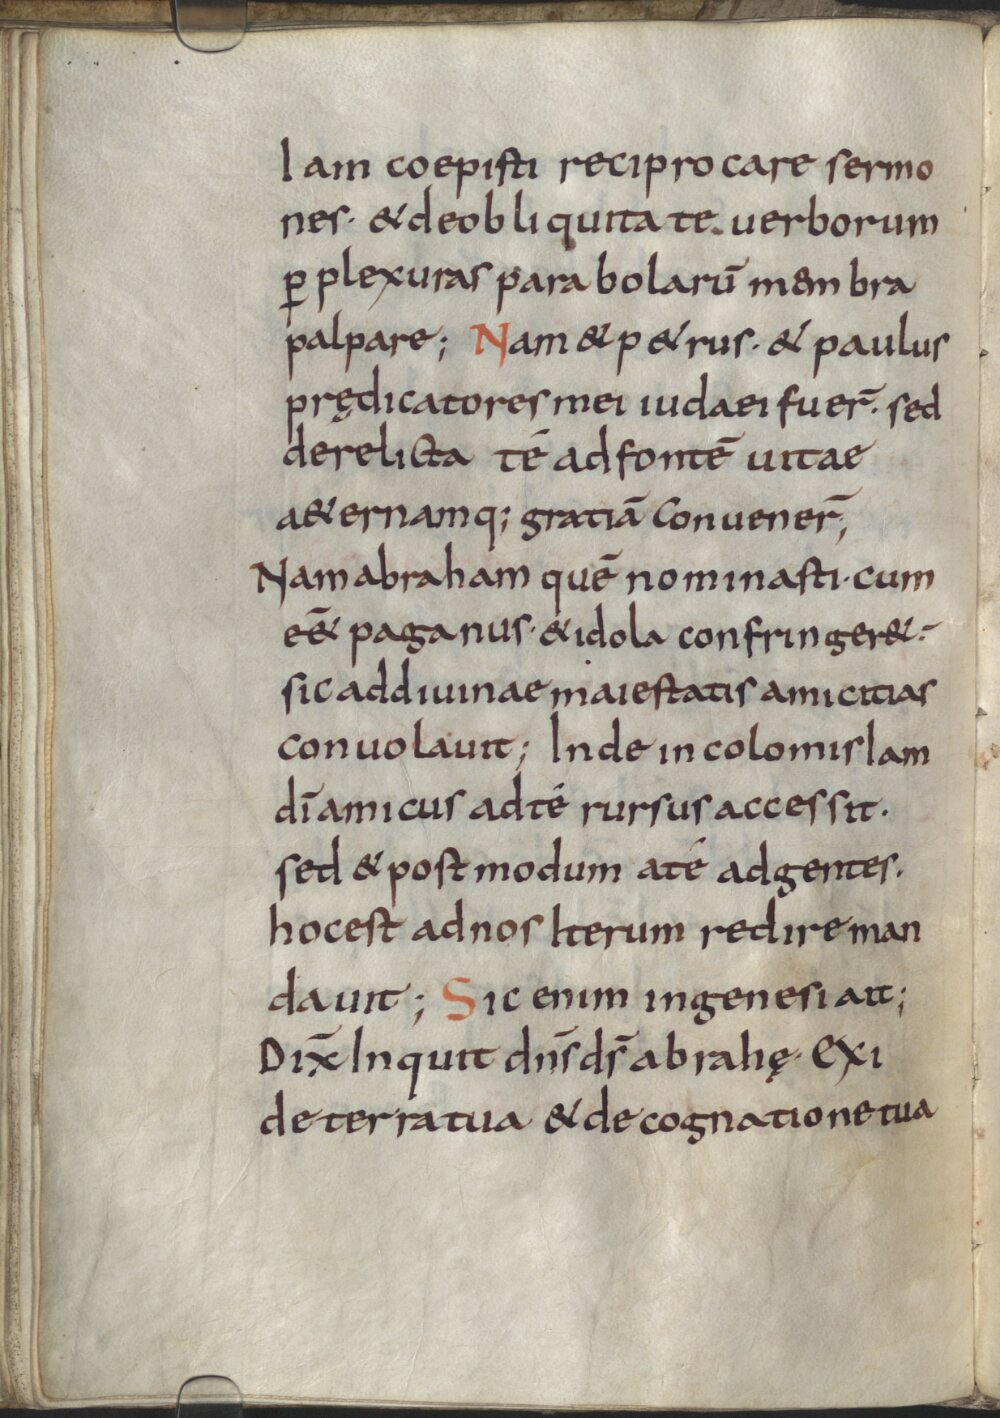 Iam coepisti reciprocare sermo
nes· & deobliquitate. uerborum
ꝑplexuras parabolarū membra
palpare; Nam & p&rus· & paulus
prędicatores mei iudaei fuer̄· sed
derelicta té adfontē uitae
a&ernamq; gratiā Conuener̄;
Nam abraham quē nominasti· cum
eē& paganus· & idola confringer&·
sic addiuinae maiestatis amicitias
conuolauit; Inde incolomis Iam
dī amicus adté rursus accessit·
sed & postmodum até adgentes·
hocest adnos Iterum redire man
dauit; Sic enim ingenesi ait;
Dix̄ Inquit dn̄s ds̄ abrahę· Exi
deterratua & decognationetua